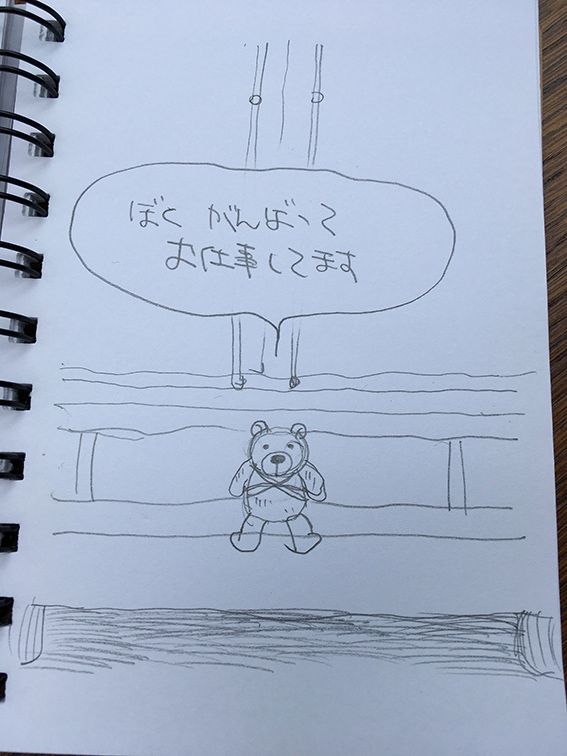 ぼく がんばって
お仕事してます